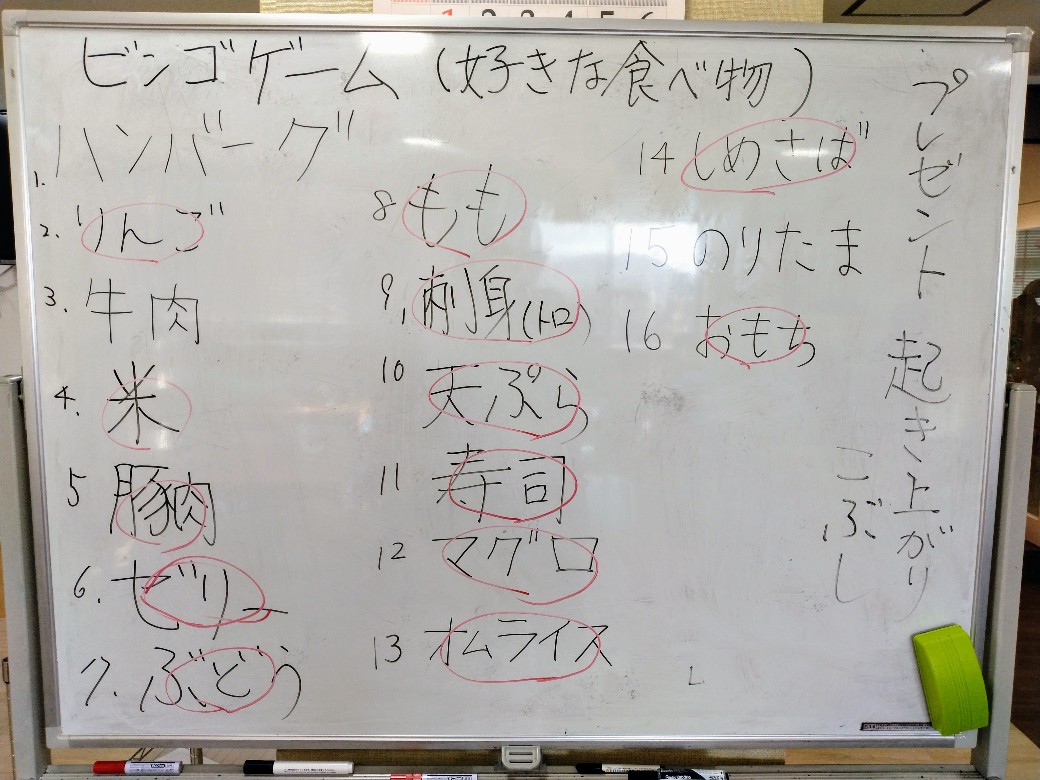 1 2 3 4 5 6
ビンゴゲーム (好きな食べ物)
1. ハンバーグ
2. りんご
3. 牛肉
4. 米
5 豚肉
6. ゼリー
7. ぶどう
8 もも
9, 刺身(トロ)
10 天ぷら
11 寿司
12 マグロ
13 オムライス
14 しめさば
15 のりたま
16 おもち
プレゼント 起き上がり
こぶし